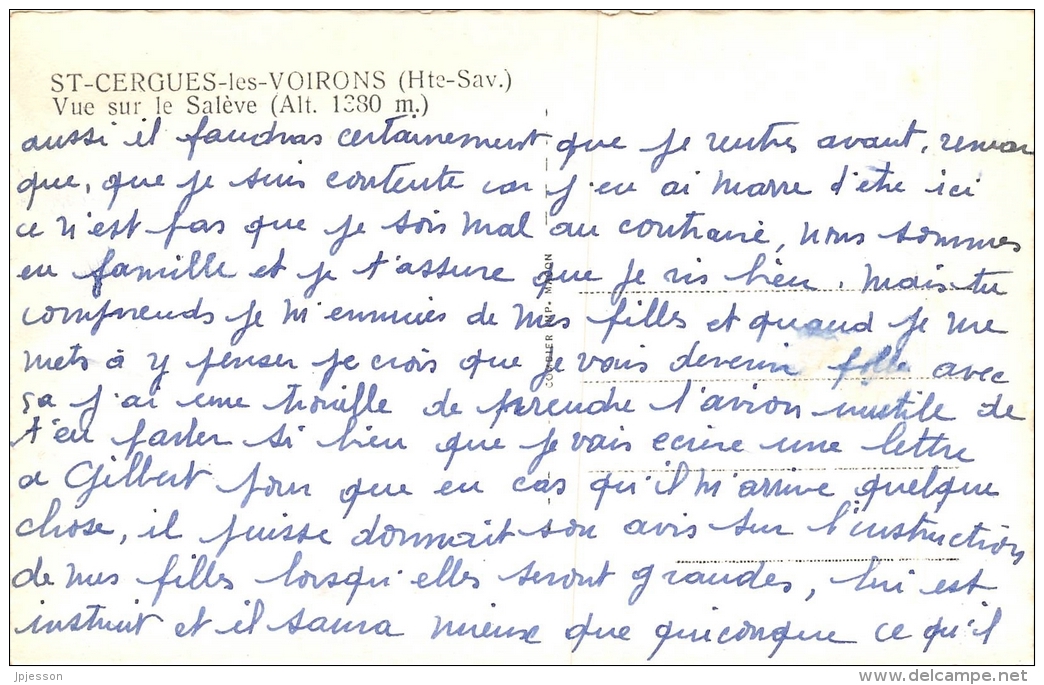 ST-CERGUES-les-VOIRONS (Hte-Sav.)
Vue sur le Salève (Alt. 1380 m.)
aussi il faudras certainement que je rentres avant, remar
que, que je suis contente car j'en ai marre d'etre ici
ce n'est pas que je sois mal au contraire, nous sommes
en famille et je t'assure que je ris bien. Mais tu
comprends je m'ennuies de mes filles et quand je me
mets à y penser je crois que je vais devenir folle avec
ça j'ai une trouille de prendre l'avion inutile de
t'en parler si bien que je vais ecrire une lettre
a Gilbert pour que en cas qu'il m'arrive quelque
chose, il puisse donnait son avis sur l'instruction
de mes filles lorsqu'elles seront grandes, lui est
instruit et il saura mieux que quiconque ce qu'il
COMBIER IMP. MACON
jpjesson
www.delcampe.net